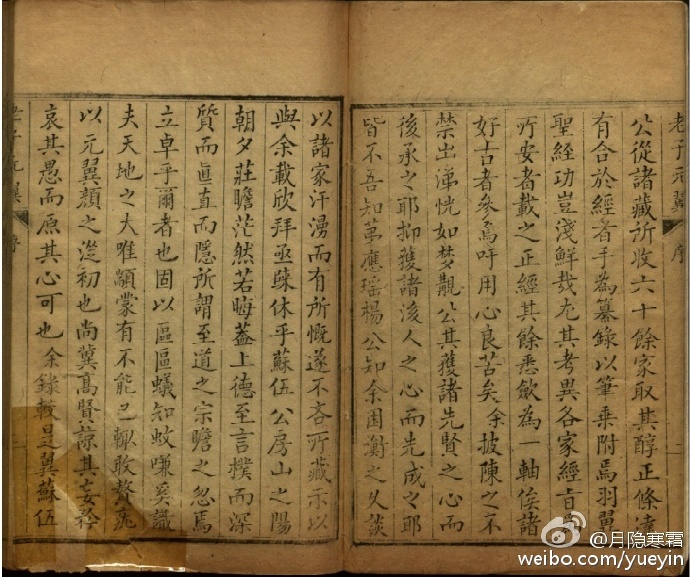 老子元翼 序
公從諸藏所收六十餘家取其醇正條達
有合於經者手為纂錄以筆乘附焉羽翼
聖經功豈淺鮮哉尤其考異各家經旨
所安者載之正經其餘悉歛為一軸俟諸
好古者參焉吁用心良苦矣余披陳之不
禁出涕恍如梦覩公其獲諸先賢之心而
後承之耶抑獲諸後人之心而先成之耶
皆不吾知第應瑤楊公知余困衡之久談
以諸家汗漫而有所慨遂不吝所藏示以
與余載欣拜亟疎休乎蘇伍公房山之陽
朝夕莊瞻茫然若晦蓋上德至言樸而深
質而眞直而隱所謂至道之宗瞻之忽焉
立卓乎爾者也固以區區蟻知蚊嗛奚識
夫天地之大唯顓蒙有不能已輙敢贅疣
以元翼顏之從初也尚冀高賢諒其妄矜
哀其愚而原其心可也余錄較是翼蘇伍
老子元翼 序
@月隐寒霜
weibo.com/yueyin